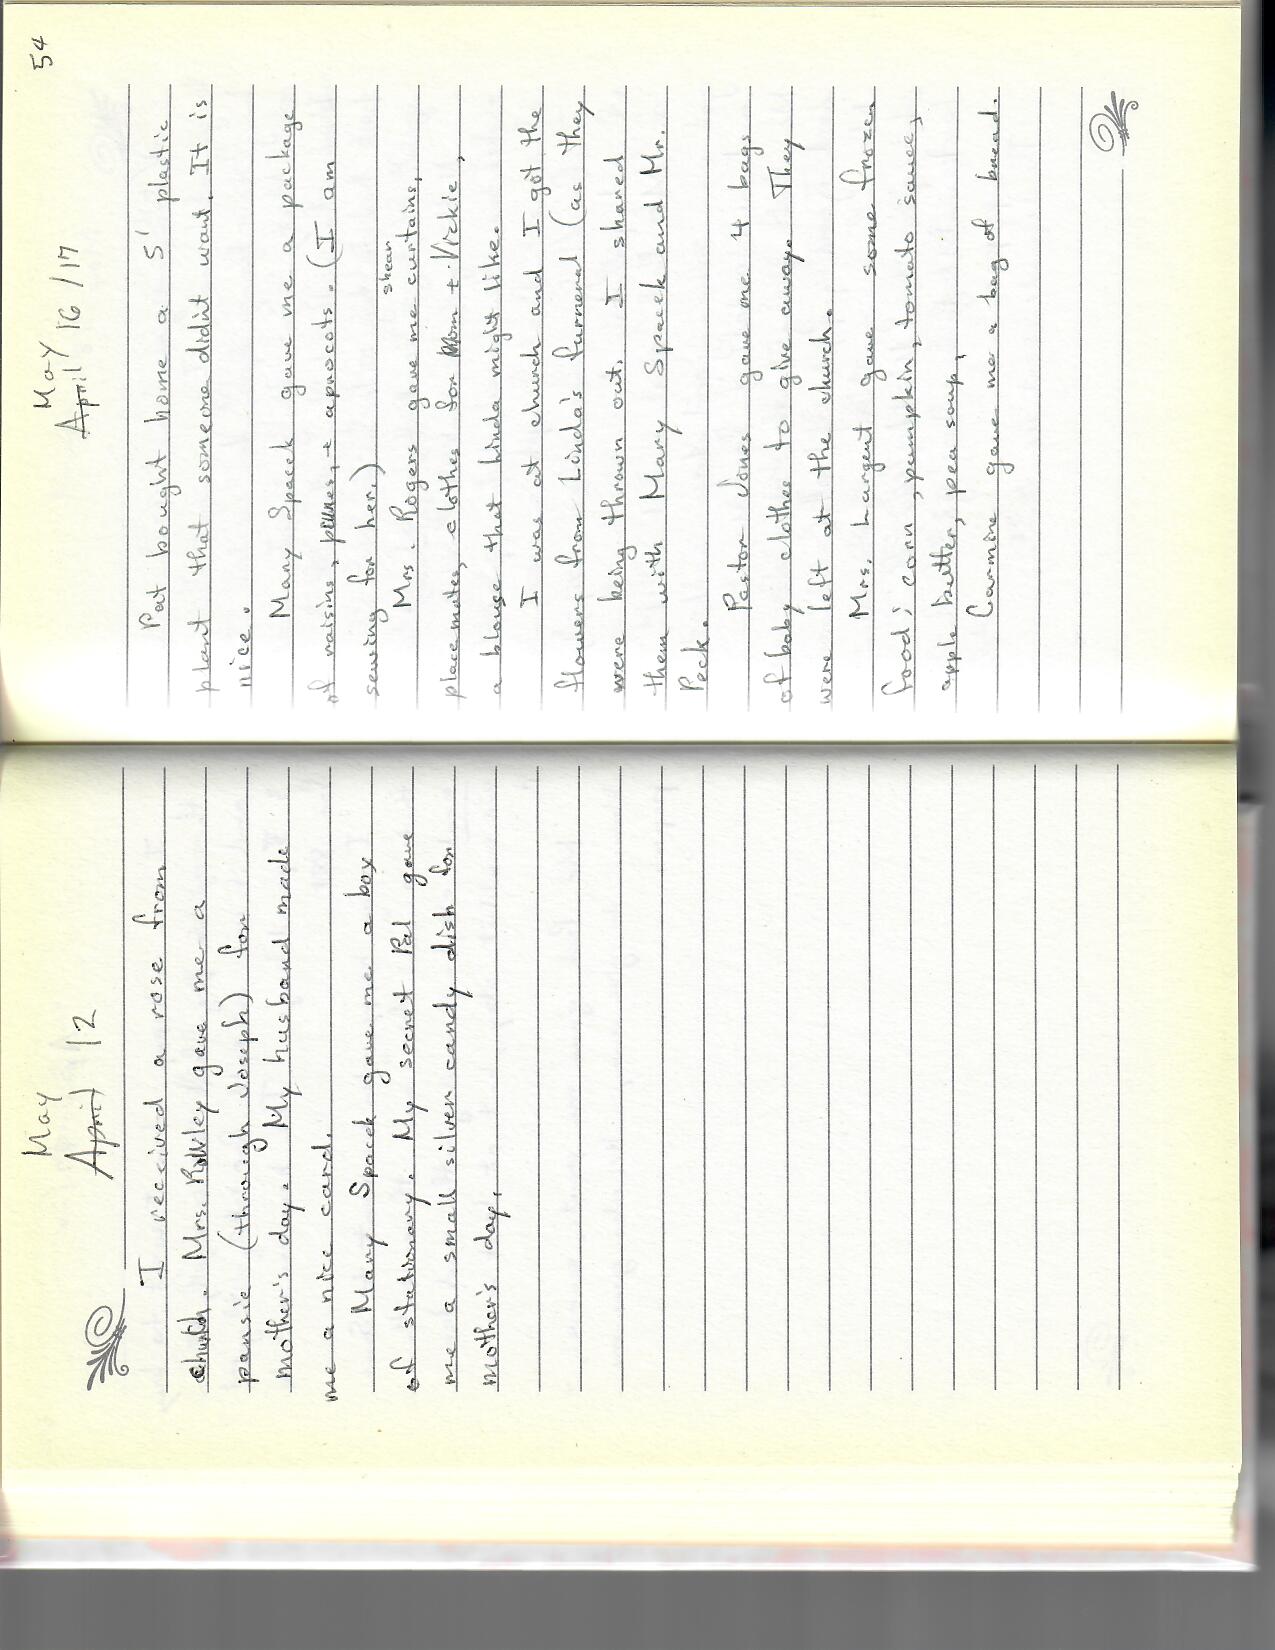 May
April 12
I received a rose from
church. Mrs. Rowley gave me a
pansie (through Joseph) for
mother's day. My husband made
me a nice card.
Mary Spacek gave me a box
of stationary. My secret Pal gave
me a small silver candy dish for
mother's day.
54
May
April 16/17
Pat bought home a 5' plastic
plant that someone didn't want. It is
nice.
Mary Spacek gave me a package
of raisins, prunes, + aprocots. (I am
sewing for her.)
shear
Mrs. Rogers gave me curtains,
placemates, clothes for Mom + Vickie,
a blouse that Linda might like.
I was at church and I got the
flowers from Linda's furneral (as they
were being thrown out. I shared
them with Mary Spacek and Mr.
Peck.
Pastor Jones gave me 4 bags
of baby clothes to give away. They
were left at the church.
Mrs. Largent gave some frozen
food; corn, pumpkin, tomato sauce,
apple butter, pea soup,
Carmine gave me a bag of bread.